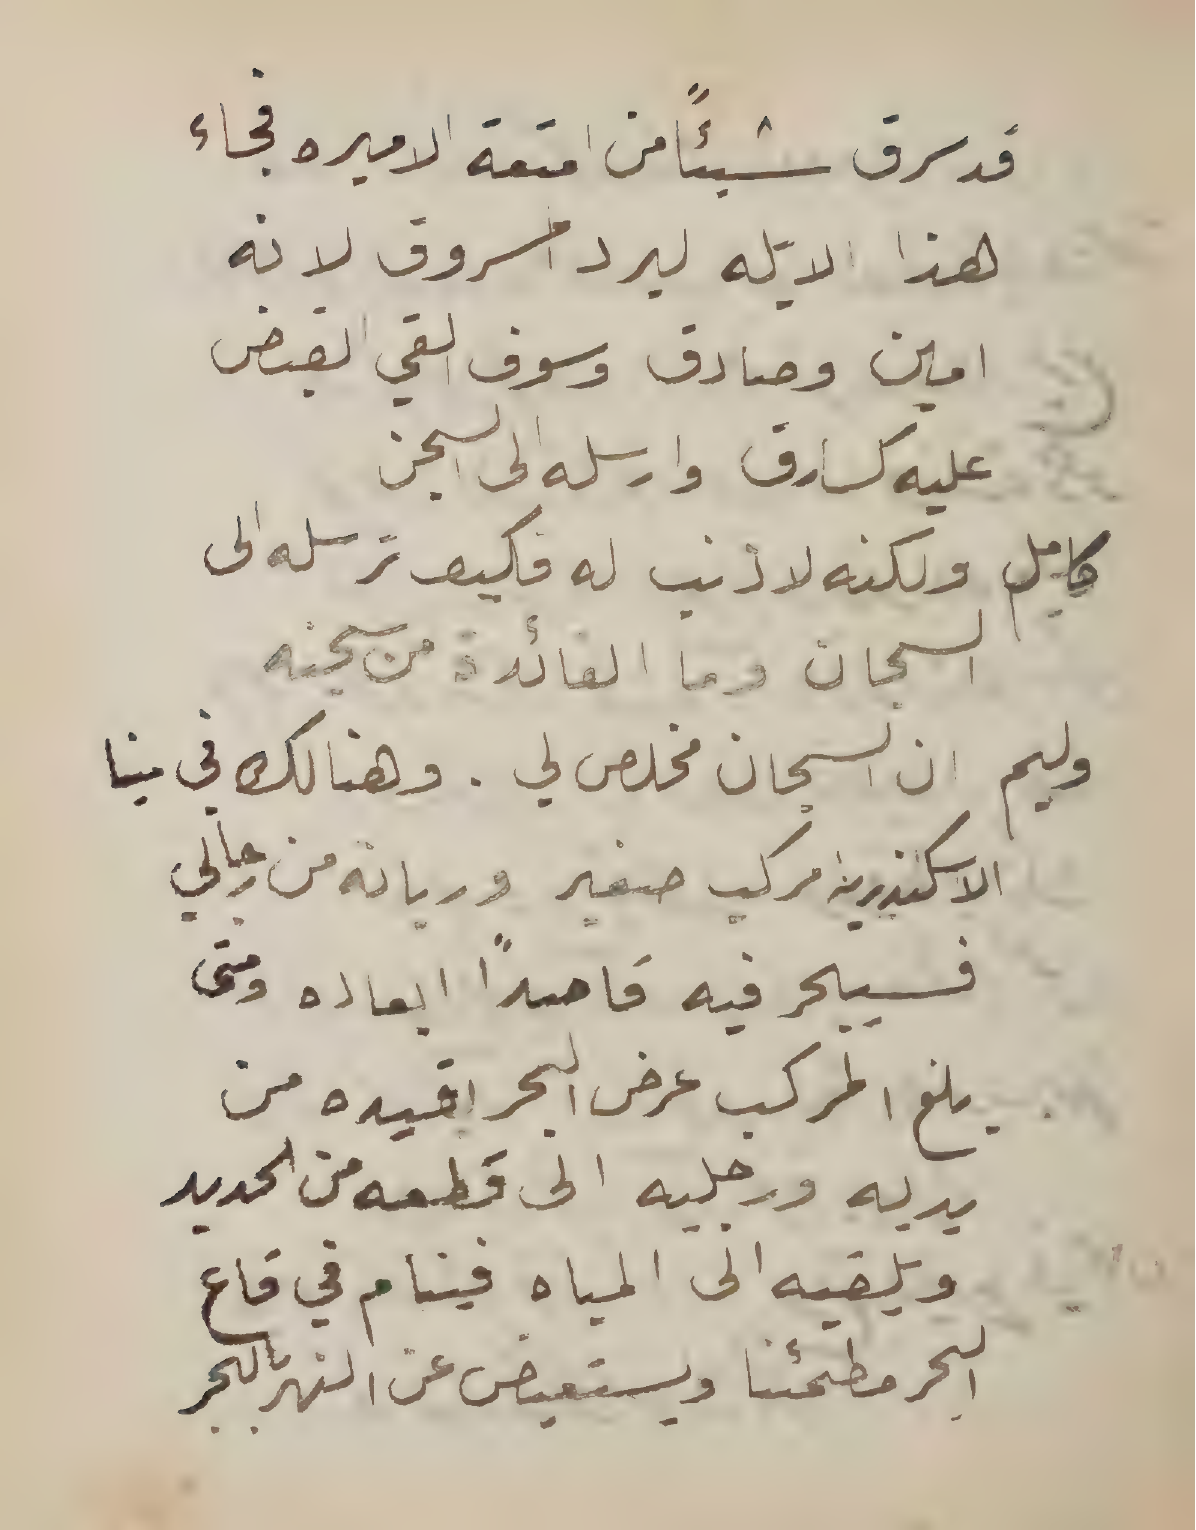 قد سرق شيئًا من امتعة الاميره فجاء
هذا الليله ليرد المسروق لانه
امين وصادق وسوف القي القبض
عليه كسارق وارسله الى السجن
كامل ولكنه لا ذنب له فكيف ترسله الى
السجان وما الفائدة من سجنه
وليم ان السجان مخلص لي . وهنالك في مينا
الاسكندرية مركب صغير وربانه من رجالي
فسيبحر فيه قاصدًا ابعاده ومتى
بلغ المركب عرض البحر اقيده من
يديه ورجليه الى قطعه من الحديد
ويلقيه الى المياه فينام في قاع
البحر مطمئنا ويستعيض عن النهر بالبحر